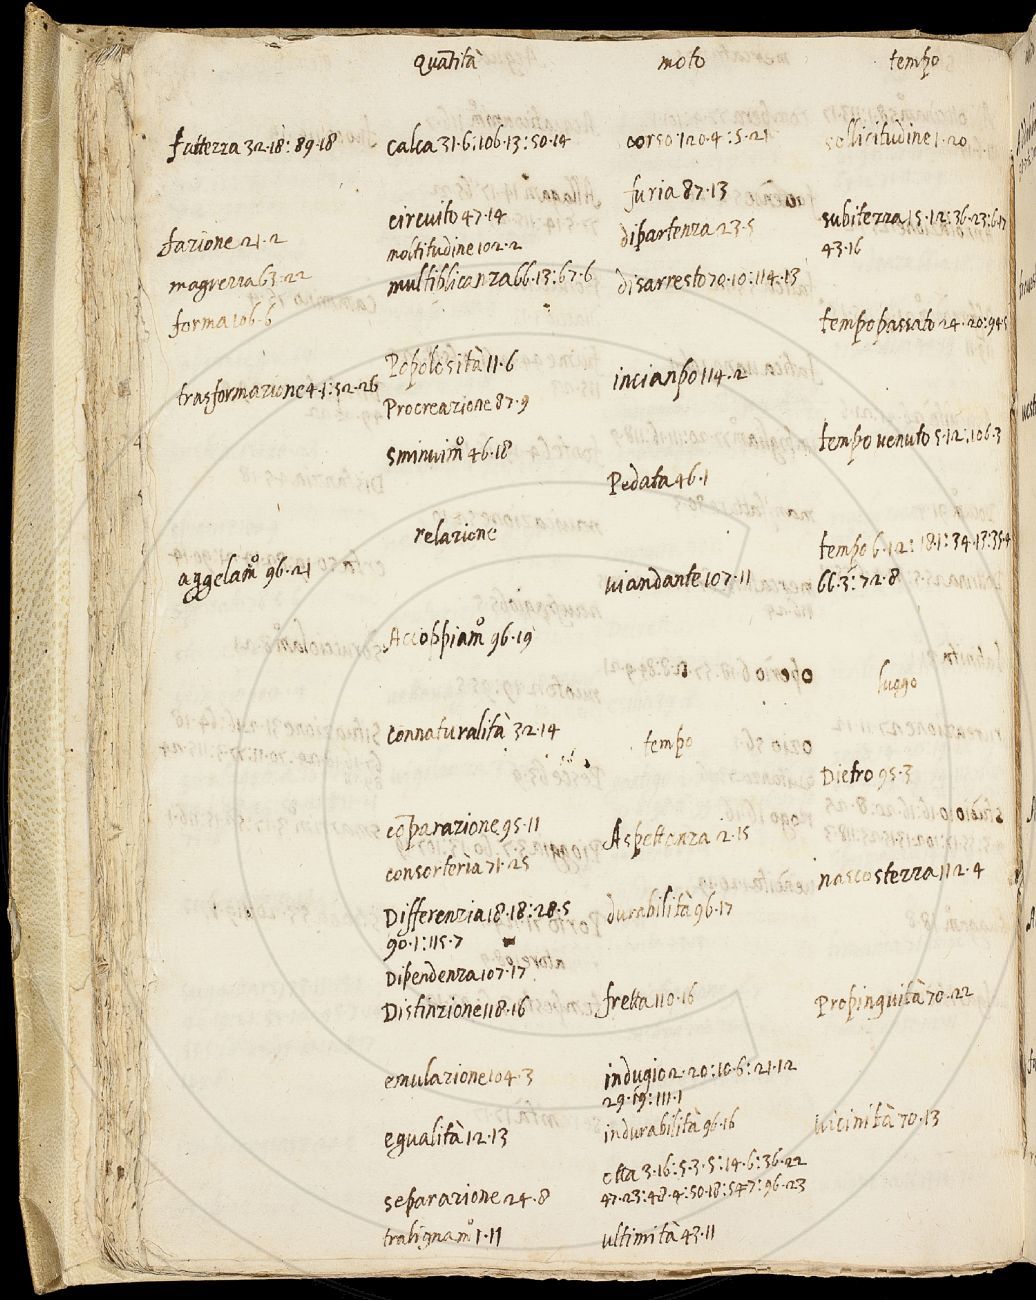 quātità
moto
tempo
fattezza 32·18: 89·18
fazione 21·2
magrezza 63·22
forma 106·6
trasformazione 4·1: 52·26
aggelam.º 96·21
calca 31·6: 106·13: 50·14
circuito 47·14
moltitudine 102·2
multiblicanza 66·13: 67·6
Popolosità 11·6
Procreazione 87·9
sminuim.º 46·18
relazione
Accoppiam.º 96·19
connaturalità 32·14
cōparazione 95·11
consorteria 71·25
Differenzia 18·18: 28·5
90·1: 115·7
Dipendenza 107·17
Distinzione 118·16
emulazione 104·3
egualità 12·13
separazione 24·8
tralignam.º 1·11
corso 120·4: 5·21
furia 87·13
dipartenza 23·5
disarresto 70·10: 114·13
incianpo 114·2
Pedata 46·1
viandante 107·11
tempo
Aspettanza 2·15
durabilità 96·17
fretta 110·16
indugio 2·20: 10·6: 21·12
29·19: 111·1
indurabilità 96·16
età 3·16: 5·3·5: 14·6: 36·22
47·23: 48·4: 50·18: 54·7: 96·23
ultimità 43·11
sollicitudine 1·20
subitezza 15·12: 36·23: 6·17
43·16
tempo passato 24·20: 94·5
tempo venuto 5·12: 106·3
tempo 6·12: 18·1: 34·17: 35·4
66·3: 72·8
luogo
Dietro 95·3
nascostezza 112·4
Propinguità 70·22
vicinità 70·13